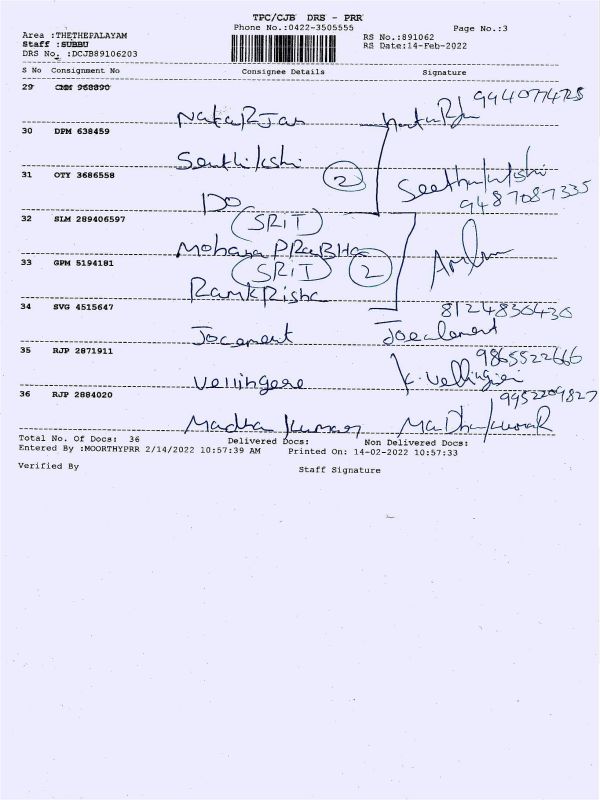 TPC/CJB DRS - PRR
Phone No.:0422-3505555
Page No.:3
Area :THETHEPALAYAM
RS No.:891062
Staff :SUBBU
RS Date:14-Feb-2022
DRS No. :DCJB89106203
S No Consignment No Consignee Details Signature
29 CMM 968890
NataRJan
30 DPM 638459
Senthilkshi
31 OTY 3686558 2
Do
9487087335
32 SLM 289406597 (SRIT)
Mohana PRaBHa
33 GPM 5194181 (SRIT) 2
RamkRisha
34 SVG 4515647 8124830430
Jocement Joeclement
35 RJP 2871911 9865522666
Vellingere K. Vellingiri
36 RJP 2884020 9952209827
Madhan kumar MaDhankumaR
Total No. Of Docs: 36 Delivered Docs: Non Delivered Docs:
Entered By :MOORTHYPRR 2/14/2022 10:57:39 AM Printed On: 14-02-2022 10:57:33
Verified By Staff Signature